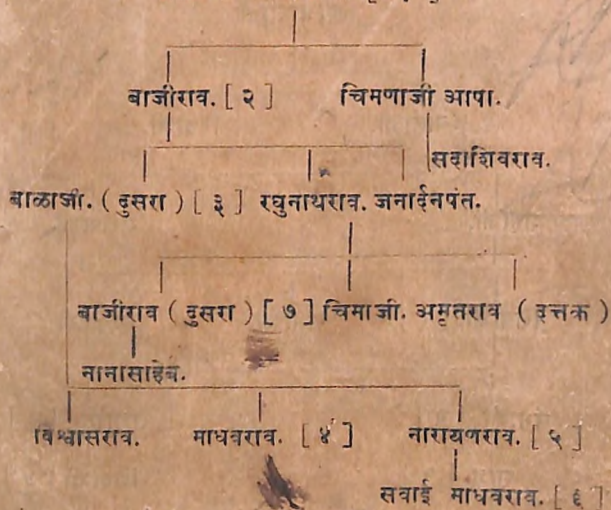 बाजीराव. [ २ ] चिमणाजी आपा.
सदाशिवराव.
बाळाजी. ( दुसरा ) [ ३ ] रघुनाथराव. जनार्दनपंत.
बाजीराव ( दुसरा ) [ ७ ] चिमाजी. अमृतराव ( दत्तक )
नानासाहेब.
विश्वासराव. माधवराव. [ ४ ] नारायणराव. [ ५ ]
सवाई माधवराव. [ ६ ]